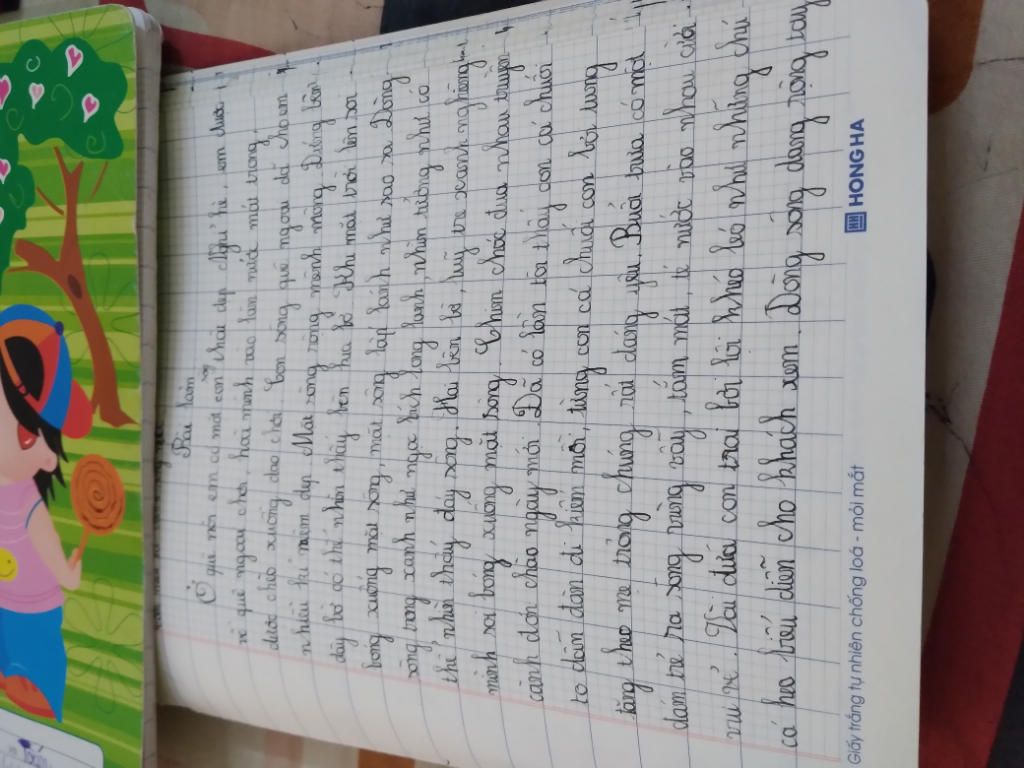 Bài làm
Ở quê nội em có một con sông thật đẹp. Nghỉ hè, em được
về quê ngoại chơi, hoà mình vào làn nước mát trong,
được chèo xuồng dạo chơi. Con sông quê ngoại đã cho em
nhiều kỉ niệm đẹp. Mặt sông rộng mênh mông. Đứng bên
đây bờ có thể nhìn thấy bên kia bờ. Khi mặt trời lên soi
bóng xuống mặt sông, mặt sông lấp lánh như sao sa. Dòng
sông trong xanh như ngọc bích long lanh, nhìn tưởng như có
thể nhìn thấy đáy sông. Hai bên bờ, luỹ tre xanh nghiêng
mình soi bóng xuống mặt sông. Chim chóc đua nhau truyền
cành đón chào ngày mới. Đã có lần tôi thấy con cá chuối
to dẫn đàn đi kiếm mồi, từng con cá chuối con bơi tung
tăng theo mẹ trông chúng rất đáng yêu. Buổi trưa có một
đám trẻ ra sông vùng vẫy, tắm mát, té nước vào nhau cười
vui vẻ. Vài đứa con trai bơi lội khéo léo như những chú
cá heo biểu diễn cho khách xem. Dòng sông dang rộng tay
HONG HA
Giấy trắng tự nhiên chống loá - mỏi mắt